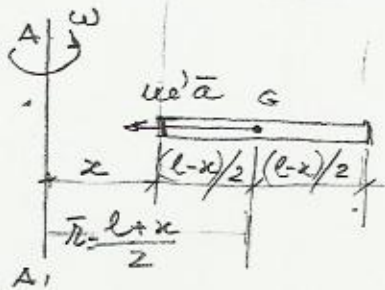 A ω
m' ā G
x (l-x)/2 (l-x)/2
r̄ = l+x
2
A₁